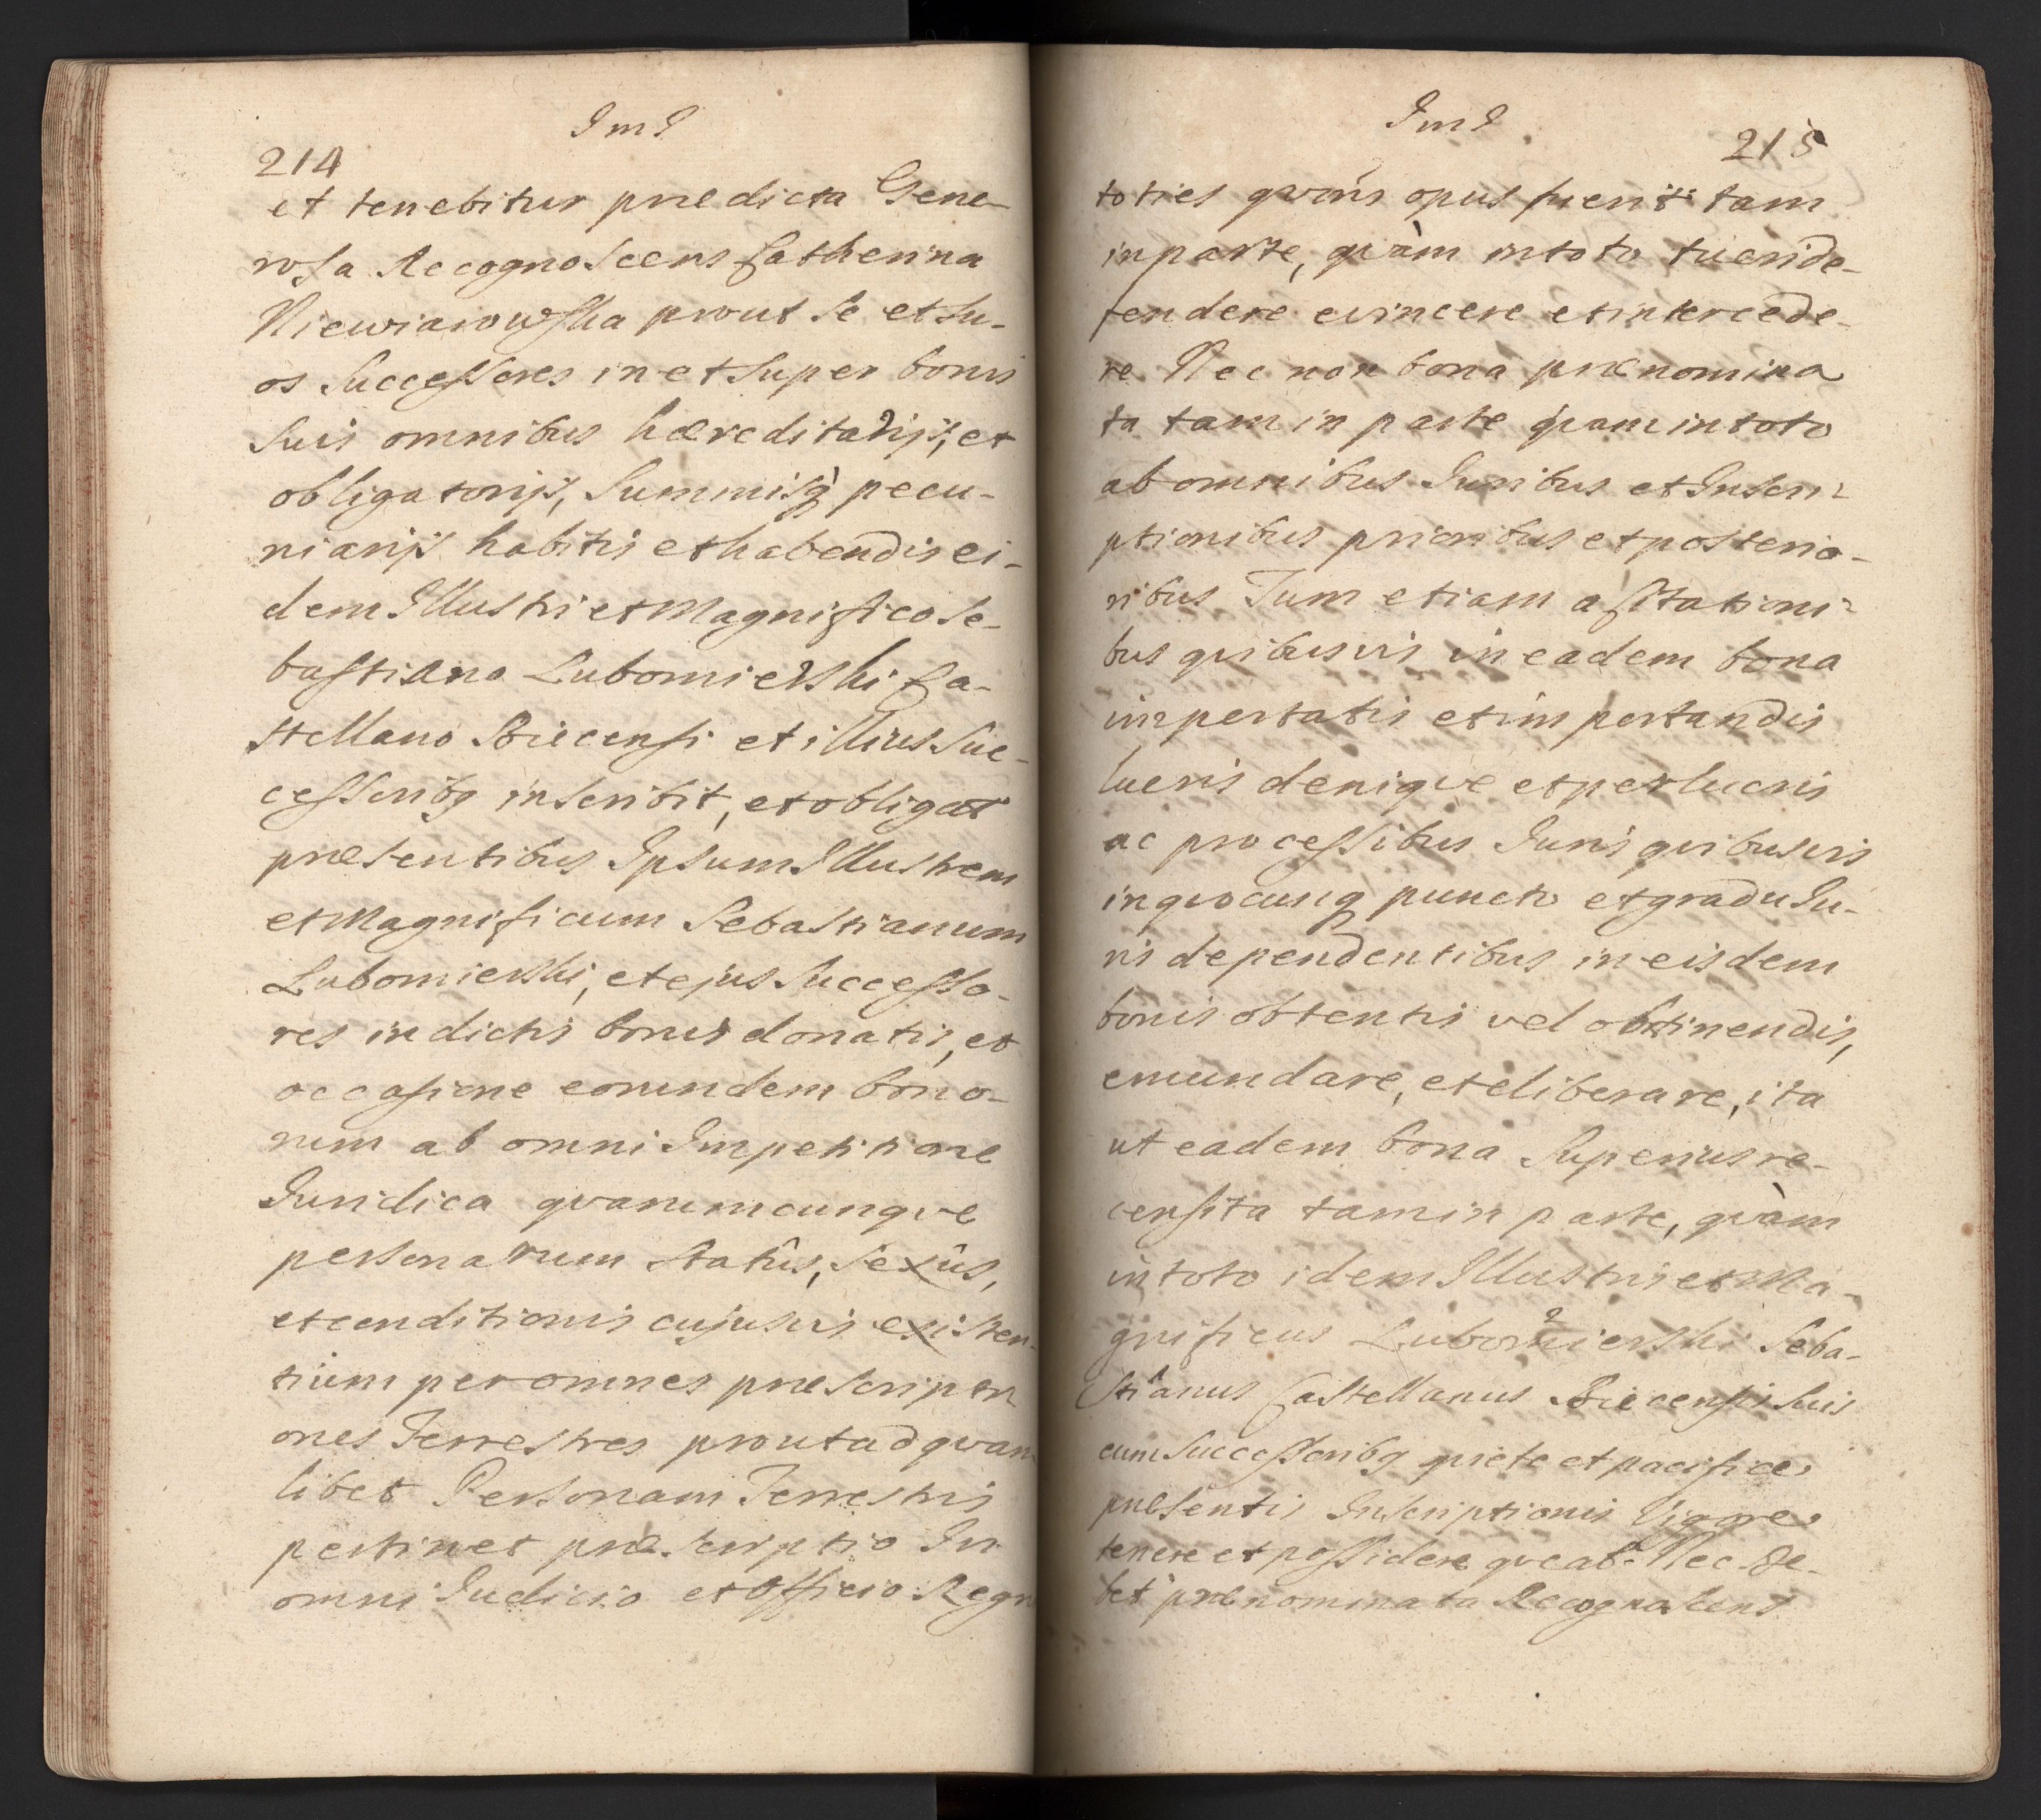 ImI
214
et tenebitur prædicta Gene-
rosa Recognoscens Catherina
Niewiarowska prout se et su-
os Successores in et super bonis
suis omnibus hæreditarijs, et
obligatorijs, Summisq̀ pecu-
niarijs habitis et habendis ei-
dem Illustri et Magnifico Se-
bastiano Lubomierski Ca-
stellano Biecensi et illius Suc-
cessoribq inscribit, et obligat
præsentibus Ipsum Illustrem
et Magnificum Sebastianum
Lubomierski, et ejus Successo-
res in dictis bonis donatis, et
occasione eorundem bono-
rum ab omni Impetitione
Juridica qvarumcunqve
personarum statûs, sexûs,
et conditionis cujusvis existen-
tium per omnes præscripti
ones Terrestres prout ad qvam
libet Personam Terrestris
pertinet præscriptio In
omni Judicio et Officio Regni
ImI
215
toties qvoties opus fuerit tam
in parte, qvàm in toto tueri de-
fendere evincere et intercede-
re Nec non bona prænomina
ta tam in parte qvam in toto
ab omnibus Juribus et Inscri-
ptionibus prioribus et posterio-
ribus Tum etiam assitationi-
bus qvibusvis in eadem bona
importatis et importandis
lucris deniqve et perlucris
ac processibus Juris qvibusvis
in qvocunq puncto et gradu Ju-
ris dependentibus in eisdem
bonis obtentis vel obtinendis,
emundare, et eliberare, ita
ut eadem bona superius re-
censita tam in parte, qvàm
in toto idem Illustris et Ma-
gnificus Lubomierski Seba-
stianus Castellanus Biecensis suis
cum Successoribq qviete et pacifice
præsentis Inscriptionis Vigore
tenere et possidere qveat. Nec de-
bet prænominata Recognoscens